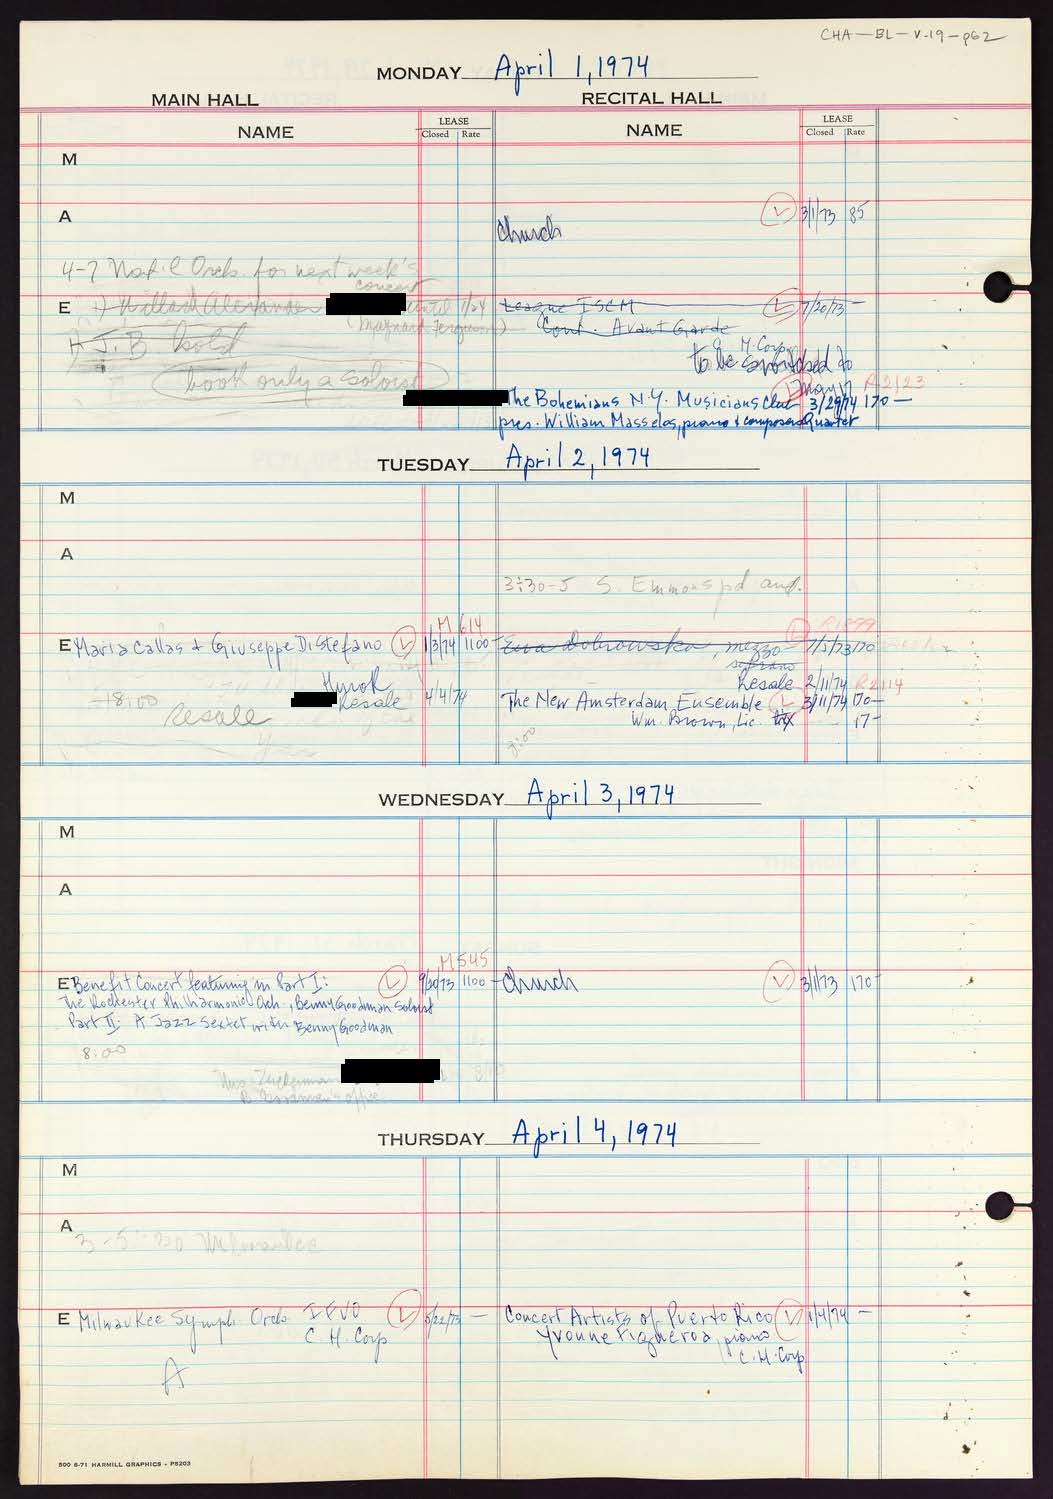 CHA-BL-V-19-p62
MONDAY April 1, 1974
MAIN HALL RECITAL HALL
NAME LEASE Closed Rate NAME LEASE Closed Rate
M
A L 3/1/73 85
Church
4-7 Nat'l Orch. for next week's
concert
E 1) Willard Alexander until 1/24 League ISCM L 7/20/73 —
(Maynard Ferguson) Cont. Avant Garde
J. B. hold C. H. Corp
to be switched to
book only a soloist May 17 R2123
The Bohemians N.Y. Musicians Club 3/29/74 170 —
pres. William Masselos, piano & composers Quartet
TUESDAY April 2, 1974
M
A
3:30-5 S. Emmons pd aud.
M 614 R1899
E Maria Callas & Giuseppe DiStefano L 1/3/74 1100 — Ewa Dobrowska, mezzo L 7/5/73 170
soprano
Hurok Resale 2/11/74 R2114
8:00 Resale 4/4/74 The New Amsterdam Ensemble L 3/11/74 170 —
Resale Wm. Brown, Lic. 17 —
8:00
WEDNESDAY April 3, 1974
M
A
M545
E Benefit Concert featuring in Part I: L 9/20/73 1100 — Church L 3/1/73 170 —
The Rochester Philharmonic Orch., Benny Goodman Soloist
Part II: A Jazz Sextet with Benny Goodman
8:00
Mrs. Zuckerman
B. Goodman's office
THURSDAY April 4, 1974
M
A 3-5:30 Milwaukee
E Milwaukee Symph. Orch. IFVO L 5/22/73 — Concert Artists of Puerto Rico L 1/4/74 —
C. H. Corp Yvonne Figueroa, piano
C. H. Corp
A
500 6-71 HARMILL GRAPHICS - P8203